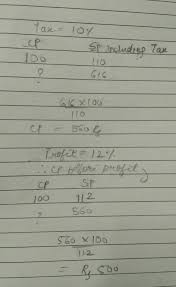 Tax = 10%
CP SP including Tax
100 110
? 616
616 × 100
110
CP = 560 Rs
Profit = 12%
∴ CP profit
CP SP
100 112
? 560
560 × 100
112
= Rs 500